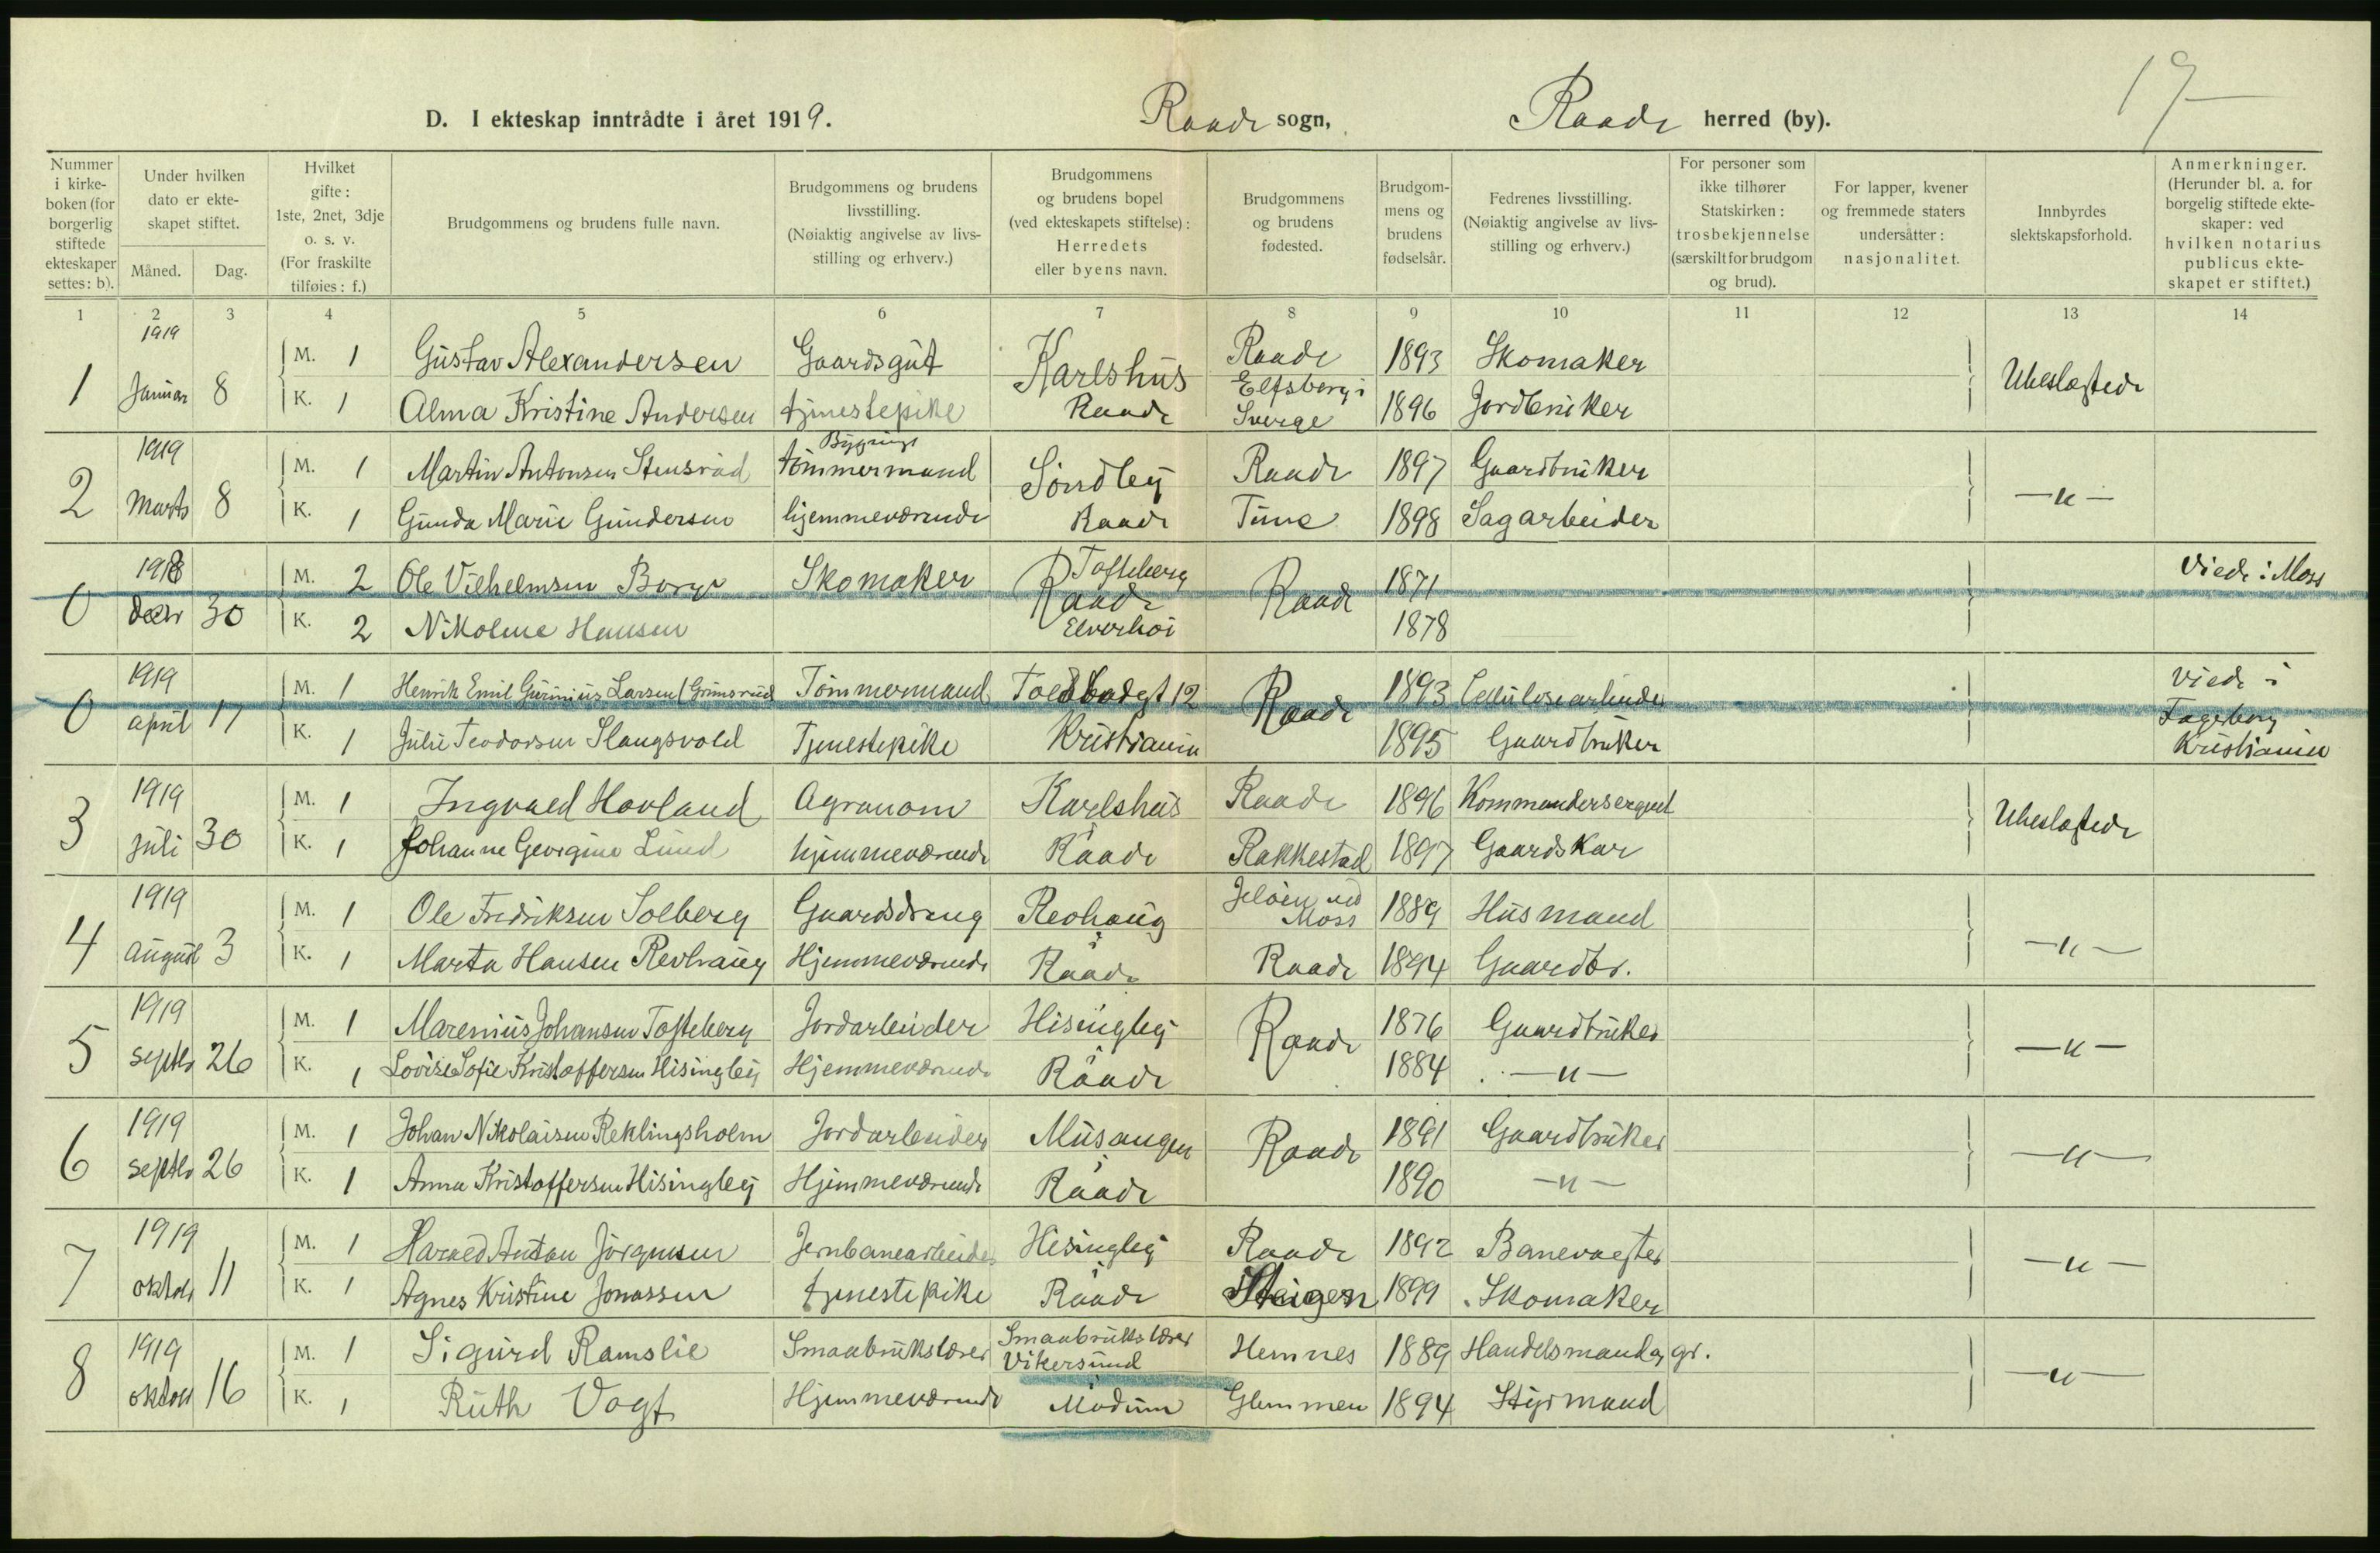 19
D. I ekteskap inntrådte i året 1919. Raade sogn, Raade herred (by).
Nummer i kirkeboken (for borgerlig stiftede ekteskaper settes: b).
Under hvilken dato er ekteskapet stiftet.
Måned. Dag.
Hvilket gifte: 1ste, 2net, 3dje o. s. v. (For fraskilte tilføies: f.)
Brudgommens og brudens fulle navn.
Brudgommens og brudens livsstilling. (Nøiaktig angivelse av livsstilling og erhverv.)
Brudgommens og brudens bopel (ved ekteskapets stiftelse): Herredets eller byens navn.
Brudgommens og brudens fødested.
Brudgommens og brudens fødselsår.
Fedrenes livsstilling. (Nøiaktig angivelse av livsstilling og erhverv.)
For personer som ikke tilhører Statskirken: trosbekjennelse (særskilt for brudgom og brud).
For lapper, kvener og fremmede staters undersåtter: nasjonalitet.
Innbyrdes slektskapsforhold.
Anmerkninger. (Herunder bl. a. for borgelig stiftede ekteskaper: ved hvilken notarius publicus ekteskapet er stiftet.)
1 2 3 4 5 6 7 8 9 10 11 12 13 14
1919
M. 1 Gustav Alexandersen Gaardsgut Karlshus Raade 1893 Skomaker
1 Januar 8 Ubeslægtede
K. 1 Alma Kristine Andersen tjenestepike Raade Elfsborg i Sverge 1896 Jordbruker
1919
M. 1 Martin Antonsen Stensrød Bygnings tömmermand Söndbey Raade 1897 Gaardbruker
2 Marts 8 -"-
K. 1 Gunda Marie Gundersen hjemmeværende Raade Tune 1898 Sagarbeider
1918
M. 2 Ole Vilhelmsen Borge Skomaker Tofteberg Raade 1871 Viede i Moss
0 decbr 30
K. 2 Nikoline Hansen Elverhöi 1878
1919
M. 1 Henrik Emil Gurinius Larsen (Grimsrud Tömmermand Toldbodgt 12 Raade 1893 Cellulosearbeider Viede i
0 april 17 Fagerborg
K. 1 Julie Teodorsen Slangsvold Tjenestepike Kristiania 1895 Gaardbruker Kristiania
1919
M. 1 Ingvald Hovland Agronom Karlshus Raade 1896 Kommandersergent
3 juli 30 Ubeslægtede
K. 1 Johanne Georgine Lund hjemmeværende Raade Rakkestad 1897 Gaardskar
1919
M. 1 Ole Fredriksen Solberg Gaardsdreng Revhaug Jelöen ved Moss 1889 Husmand
4 August 3 -"-
K. 1 Marta Hansen Revhaug Hjemmeværende Raade Raade 1894 Gaardbr.
1919
M. 1 Marenius Johansen Tofteberg Jordarbeider Hisingbey Raade 1876 Gaardbruker
5 septbr 26 -"-
K. 1 Lovise Sofie Kristoffersen Hisingbey Hjemmeværende Raade 1884 -"-
1919
M. 1 Johan Nikolaisen Reklingsholm Jordarbeider Musangen Raade 1891 Gaardbruker
6 septbr 26 -"-
K. 1 Anna Kristoffersen Hisingbey Hjemmeværende Raade 1890 -"-
1919
M. 1 Harald Anton Jörgensen Jernbanearbeider Hisingbey Raade 1892 Banevogter
7 oktobr 11 -"-
K. 1 Agnes Kristine Jonassen tjenestepike Raade Steigen 1899 Skomaker
1919
M. 1 Sigurd Ramslie Smaabrukslærer Smaabrukslærer Vikersund Hemnes 1889 Handelsmand og gr.
8 oktobr 16 -"-
K. 1 Ruth Vogt Hjemmeværende Modum Glemmen 1894 Styrmand